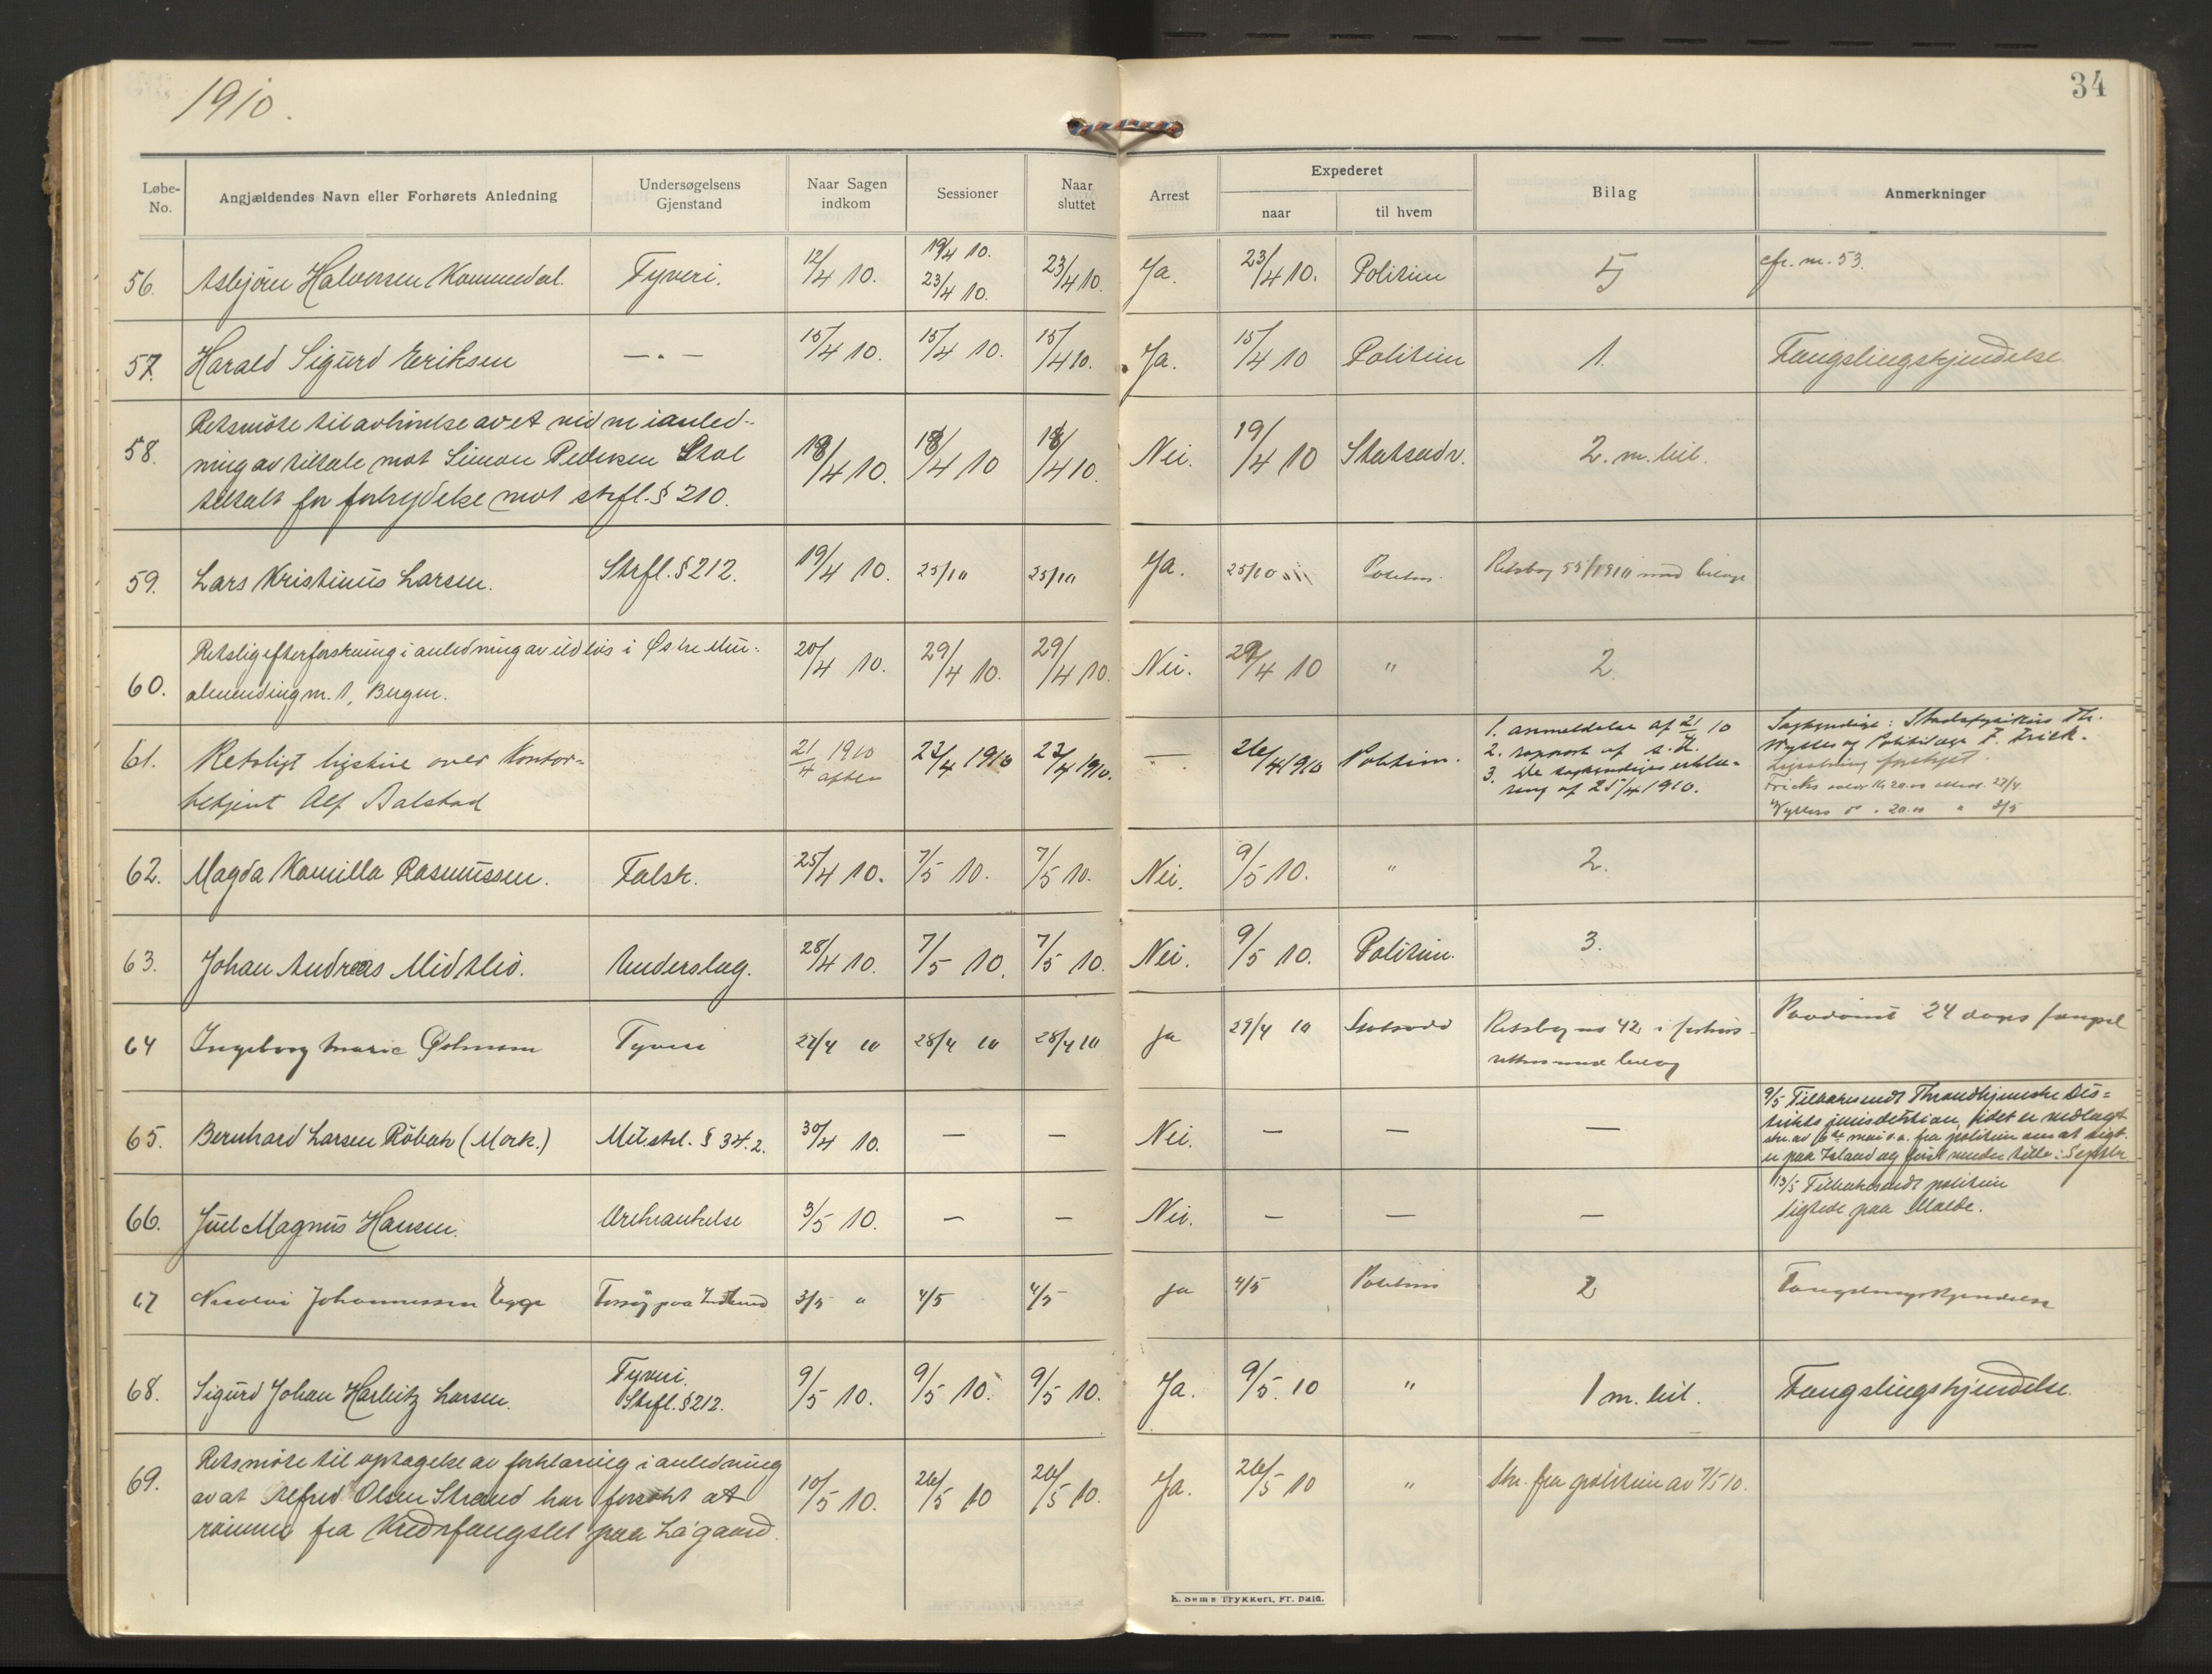 1910.
34
Løbe-No.
Angjældendes Navn eller Forhørets Anledning
Undersøgelsens Gjenstand
Naar Sagen indkom
Sessioner
Naar sluttet
Arrest
Expederet
naar
til hvem
Bilag
Anmerkninger
56. Asbjörn Halvorsen Kommedal. Tyveri. 12/4 10. 19/4 10. 23/4 10. 23/4 10. Ja. 23/4 10. Politien 5 cfr. nr. 53.
57. Harald Sigurd Eriksen —„— 15/4 10. 15/4 10. 15/4 10. Ja. 15/4 10 Politien 1. Fængslingskjendelse
58. Retsmöte til avhörelse av et vidne i anled-
ning av tiltale mot Simon Pedersen Stol
tiltalt for forbrydelse mot strfl. § 210. 18/4 10. 18/4 10 18/4 10. Nei. 19/4 10 Statsadv. 2. m. bil.
59. Lars Kristinius Larsen. Strfl. § 212. 19/4 10. 25/10 25/10 Ja. 25/10 Politiet. Retsbog 55/1910 med bilage
60. Retslig efterforskning i anledning av ildlös i Østre Mur-
almending nr. 1, Bergen. 20/4 10. 29/4 10. 29/4 10. Nei. 29/4 10 " 2.
61. Retsligt ligskue over Kontor-
betjent Alf Aalstad 21/4 1910 aften 23/4 1910 23/4 1910. — 26/4 1910 Politiet.
1. anmeldelse af 21/4 10
2. rapport af s. d.
3. De sagkyndiges erklæ-
ring af 25/4 1910.
Sagkyndige: Stadsfysikus Th.
Wyller og Politilæge F. Frick.
Ligaabning foretget.
Fricks kr 20.00 27/4
Wyllers do " 20.00 " 3/5
62. Magda Kamilla Rasmussen. Falsk. 25/4 10. 7/5 10. 7/5 10. Nei. 9/5 10. " 2.
63. Johan Andreas Midtlid. Underslag. 28/4 10. 7/5 10. 7/5 10. Nei. 9/5 10. Politien. 3.
64 Ingeborg Marie Tyveri 27/4 10 28/4 10 28/4 10 ja 29/4 10 Statsadv Retsbog no 42 i forhörs-
retten med bilag Paadömt 24 dages fængsel
65. Bernhard Larsen Röbæk (Mork.) Mil. strl. § 34. 2. 30/4 10. — — Nei. — — —
9/5 Tilbakesendt Throndhjemske Dis-
trikts jurisdiktion, idet er vedlagt
skr. av 6te mai d. a. fra politien om at sigt.
er paa Island og først vender tilb. i Septbr
66. Juel Magnus Hansen. Ærekrænkelse 3/5 10. — — Nei. — — —
13/5 Tilbakesendt politien
sigtede paa Molde.
67 Nicolai Johannessen Egge Forsög paa 3/5 " 4/5 4/5 ja 4/5 Politiet 2 Fængslingskjendelse
68. Sigurd Johan Harbitz Larsen. Tyveri. Strfl. § 212. 9/5 10. 9/5 10. 9/5 10. Ja. 9/5. 10 " 1 m. bil. Fængslingskjendelse.
69. Retsmöte til optagelse av forklaring i anledning
av at Alfred Olsen Strand har forsökt at
römme fra Kredsfængslet paa Lagaard. 10/5 10. 26/5 10 26/5 10. Ja. 26/5 10 " Skr. fra politien av 7/5 10.
E. Sems Trykkeri, Fr. hald.